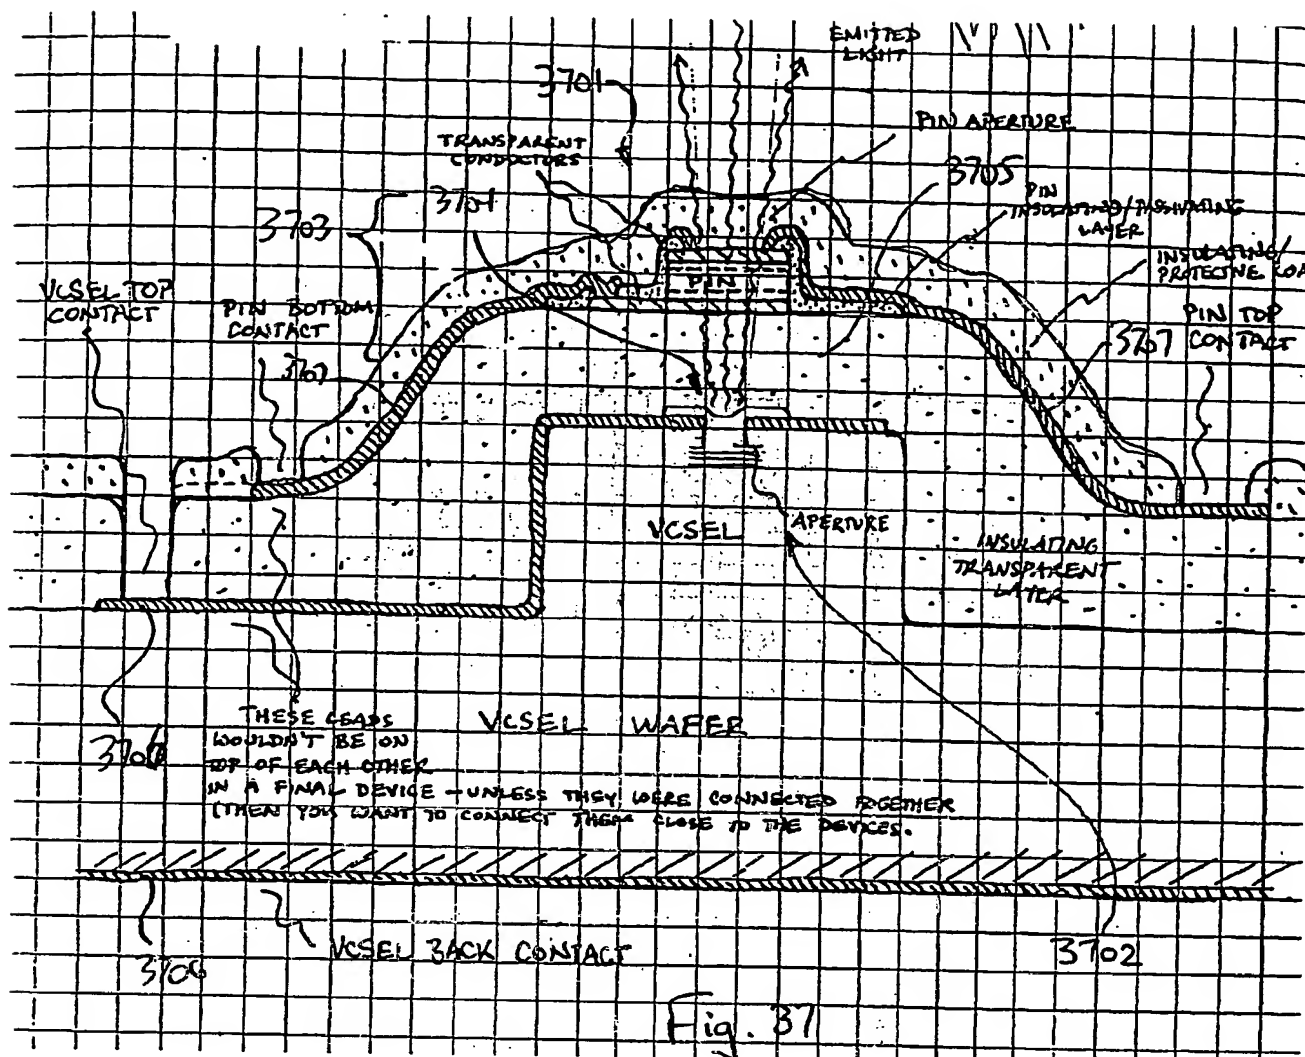 EMITTED
LIGHT
3701
PIN APERTURE
TRANSPARENT
CONDUCTORS
3705
3704
PIN
INSULATING/PASSIVATING
LAYER
3703
INSULATING/
PROTECTIVE COA
VCSEL TOP
CONTACT
PIN BOTTOM
CONTACT
PIN
PIN TOP
CONTACT
3707
3707
VCSEL
APERTURE
INSULATING
TRANSPARENT
LAYER
THESE LEADS
WOULDN'T BE ON
TOP OF EACH OTHER
IN A FINAL DEVICE - UNLESS THEY WERE CONNECTED TOGETHER
(THEN YOU WANT TO CONNECT THEM CLOSE TO THE DEVICES.
VCSEL WAFER
3706
VCSEL BACK CONTACT
3706
3702
Fig. 37